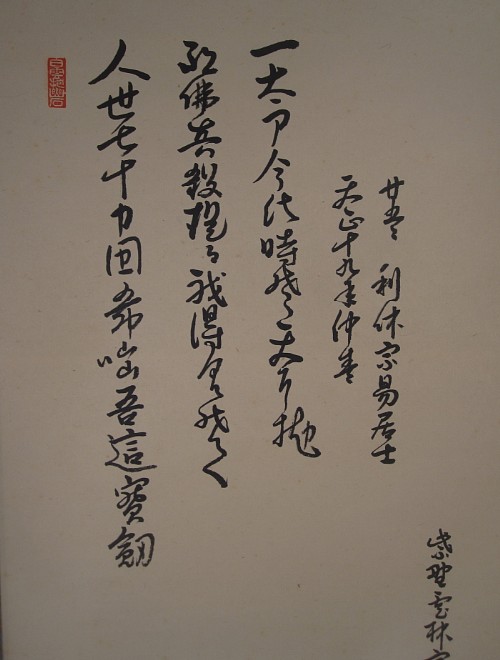 人世七十力囲希咄吾這寶劍
祖佛共殺提る我得具足の
一太刀今此時そ天に抛
天正十九年仲春
廿五日 利休宗易居士
紫野雲林